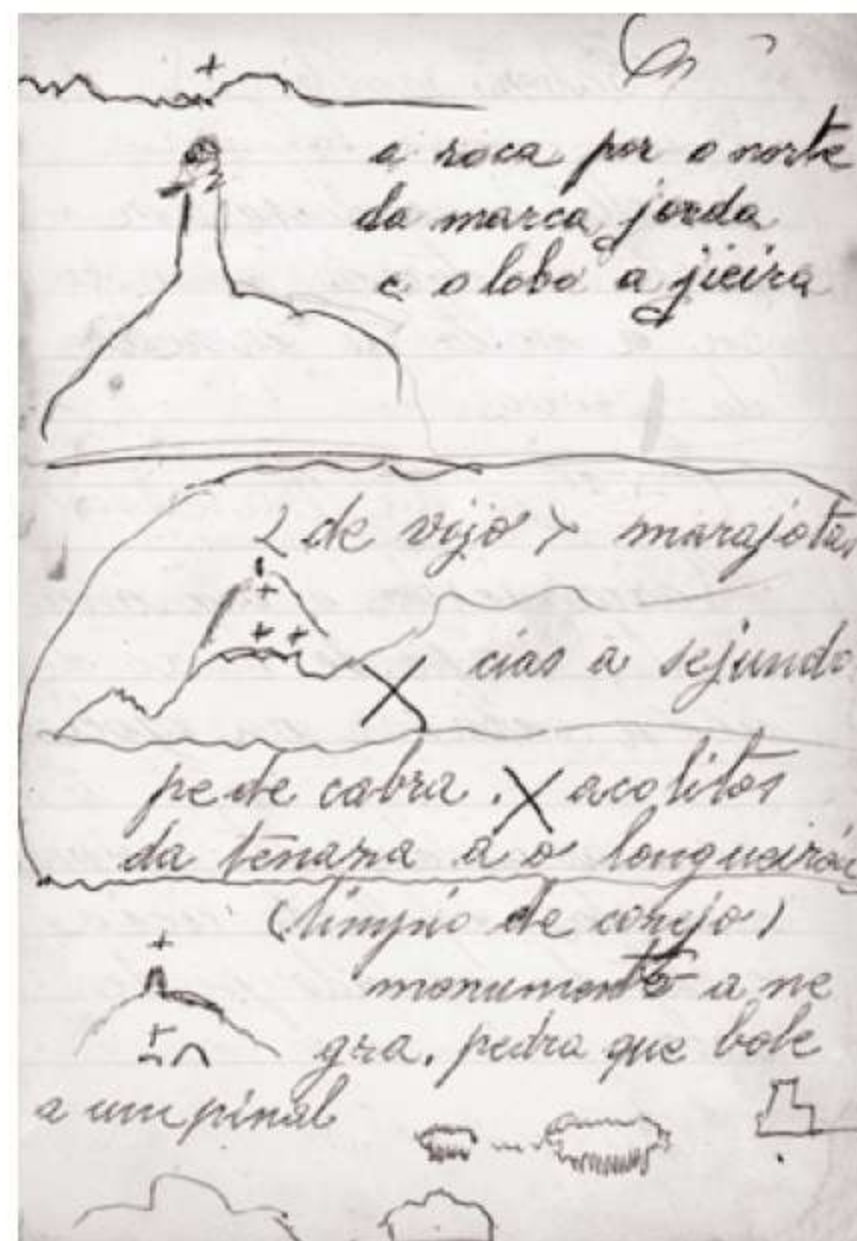 a roca por o norte
da marca jorda
e o lobo a jieira
2 de vijo > marajotas
cias a sejundo
pe de cabra . X acolitos
da tenaza a o longueirón
(limpio de conejo)
monumento a ne
gra. pedra que bole
a um pinal